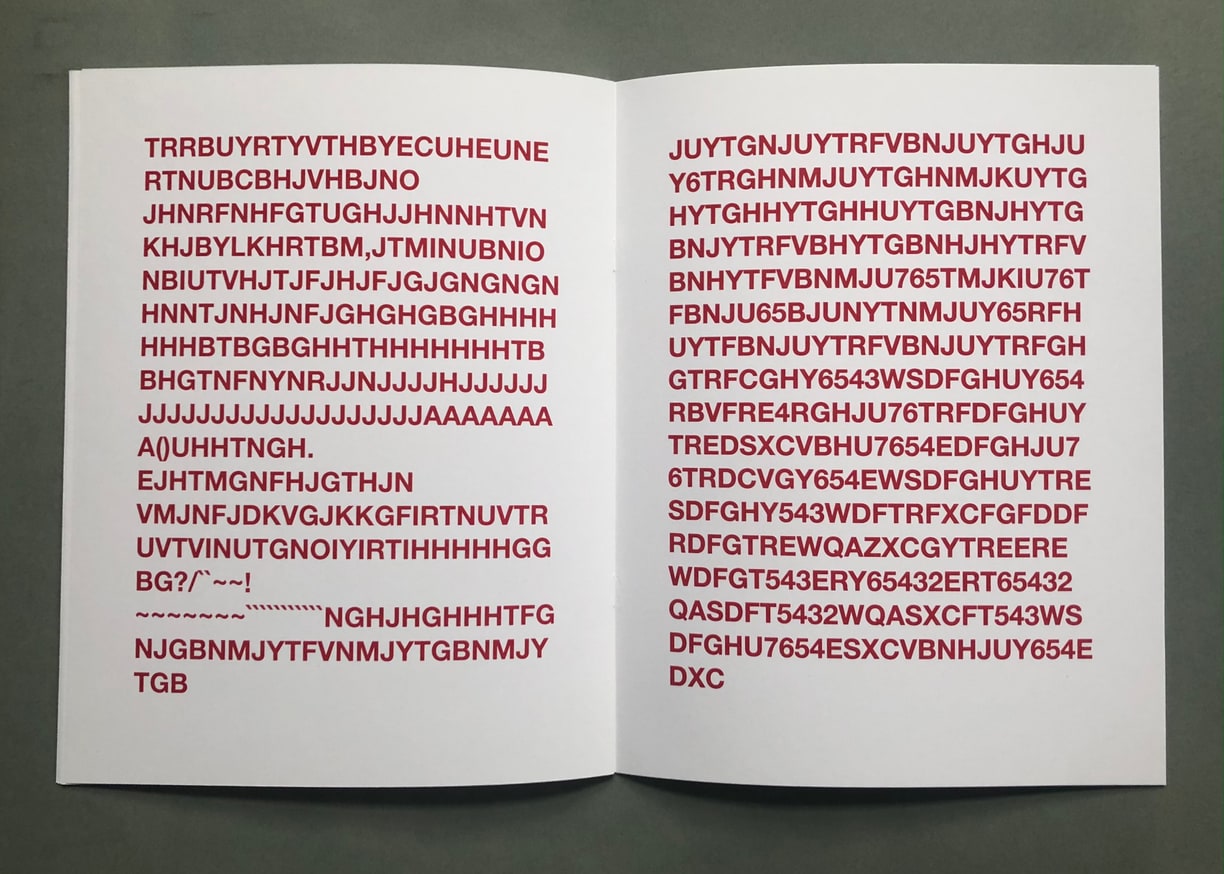 TRRBUYRTYVTHBYECUHEUNE
RTNUBCBHJVHBJNO
JHNRFNHFGTUGHJJHNNHTVN
KHJBYLKHRTBM,JTMINUBNIO
NBIUTVHJTJFJHJFJGJGNGNGN
HNNTJNHJNFJGHGHGBGHHHH
HHHBTBGBGHHTHHHHHHHTB
BHGTNFNYNRJJNJJJJHJJJJJJ
JJJJJJJJJJJJJJJJJJJJAAAAAAA
A()UHHTNGH.
EJHTMGNFHJGTHJN
VMJNFJDKVGJKKGFIRTNUVTR
UVTVINUTGNOIYIRTIHHHHHGG
BG?/``~~!
~~~~~~~```````````NGHJHGHHHTFG
NJGBNMJYTFVNMJYTGBNMJY
TGB
JUYTGNJUYTRFVBNJUYTGHJU
Y6TRGHNMJUYTGHNMJKUYTG
HYTGHHYTGHHUYTGBNJHYTG
BNJYTRFVBHYTGBNHJHYTRFV
BNHYTFVBNMJU765TMJKIU76T
FBNJU65BJUNYTNMJUY65RFH
UYTFBNJUYTRFVBNJUYTRFGH
GTRFCGHY6543WSDFGHUY654
RBVFRE4RGHJU76TRFDFGHUY
TREDSXCVBHU7654EDFGHJU7
6TRDCVGY654EWSDFGHUYTRE
SDFGHY543WDFTRFXCFGFDDF
RDFGTREWQAZXCGYTREERE
WDFGT543ERY65432ERT65432
QASDFT5432WQASXCFT543WS
DFGHU7654ESXCVBNHJUY654E
DXC